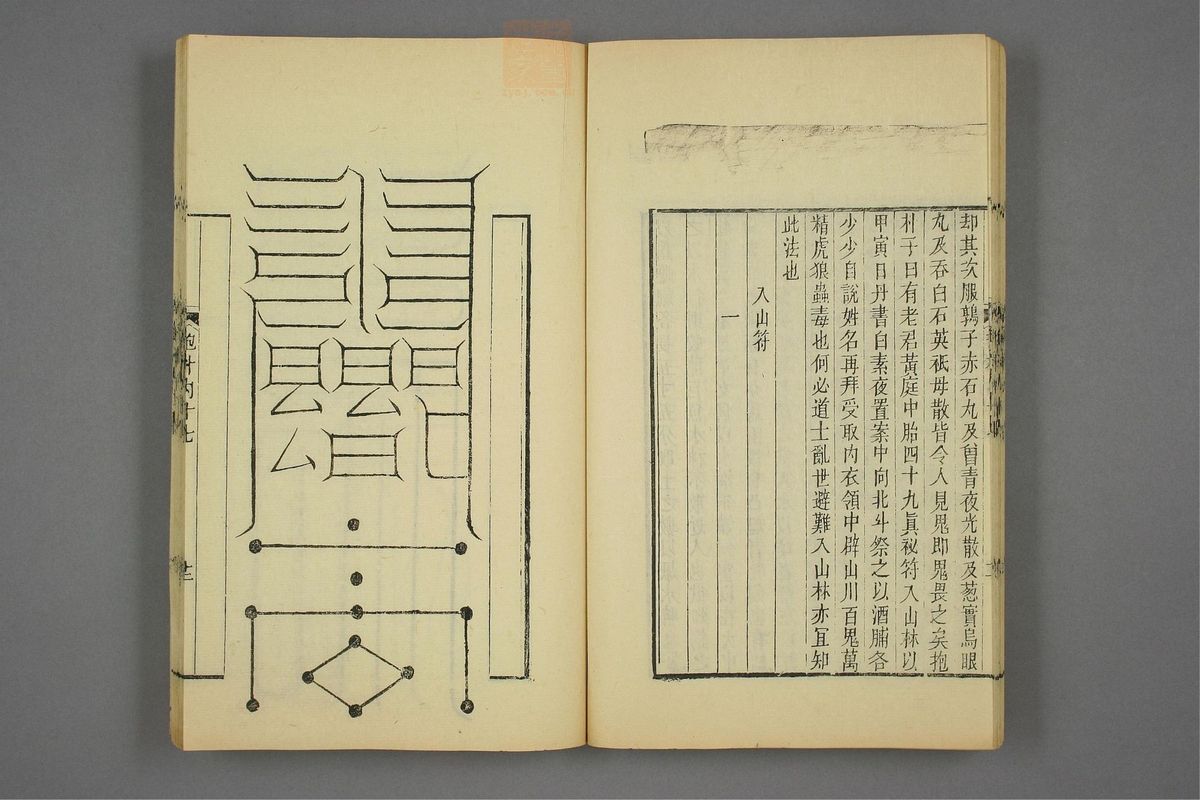 却其次服鶉子赤石丸及曾青夜光散及葱實烏眼
丸及吞白石英祇母散皆令人見鬼即鬼畏之矣抱
朴子曰有老君黃庭中胎四十九眞祕符入山林以
甲寅日丹書白素夜置案中向北斗祭之以酒脯各
少少自說姓名再拜受取內衣領中辟山川百鬼萬
精虎狼蟲毒也何必道士亂世避難入山林亦宜知
此法也
入山符
一
抱朴內十七